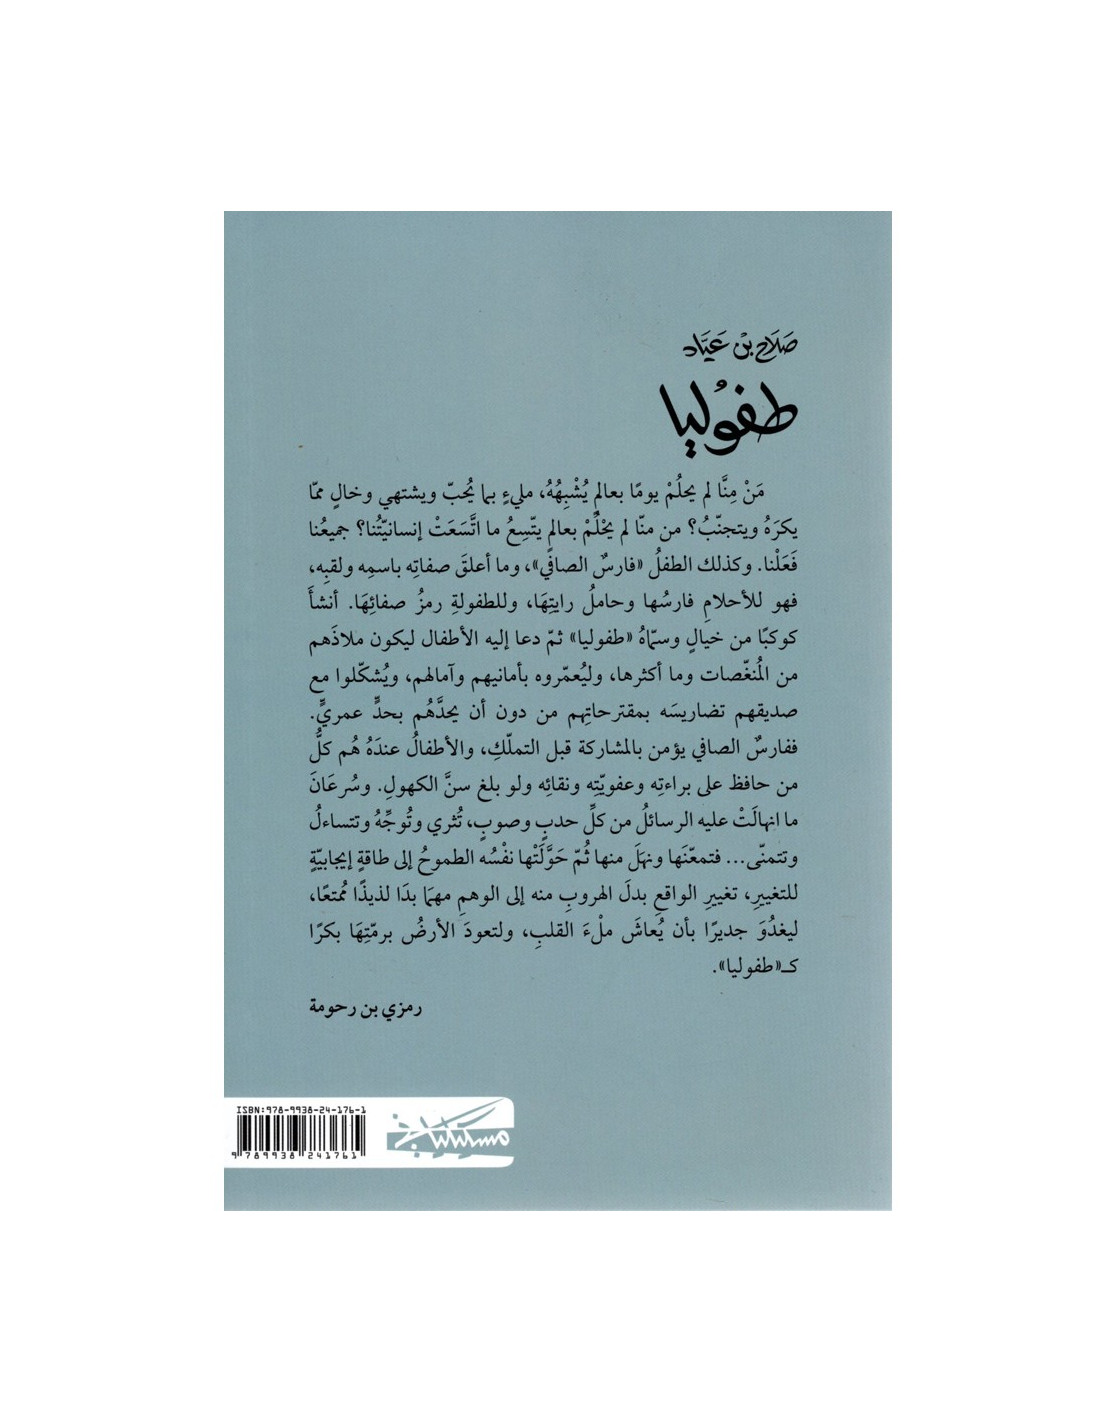 صَلَاح بْن عَيَّاد
طفُوليا
مَنْ مِنَّا لم يحلُمْ يومًا بعالمٍ يُشْبِهُهُ، مليءٍ بما يُحبّ ويشتهي وخالٍ ممّا
يكرَهُ ويتجنّبُ؟ من منّا لم يحْلُمْ بعالمٍ يتّسِعُ ما اتَّسَعَتْ إنسانيّتُنا؟ جميعُنا
فَعَلْنا. وكذلك الطفلُ «فارسٌ الصافي»، وما أعلقَ صفاتِه باسمِه ولقبِه،
فهو للأحلامِ فارسُها وحاملُ رايتِهَا، وللطفولةِ رمزُ صفائِهَا. أنشأَ
كوكبًا من خيالٍ وسمّاهُ «طفوليا» ثمّ دعا إليه الأطفال ليكون ملاذَهم
من المُنغّصات وما أكثرها، وليُعمّروه بأمانيهم وآمالهم، ويُشكّلوا مع
صديقهم تضاريسَه بمقترحاتِهم من دون أن يحدَّهُم بحدٍّ عمريٍّ.
ففارسٌ الصافي يؤمن بالمشاركة قبل التملّكِ، والأطفالُ عندَهُ هُم كلُّ
من حافظ على براءتِه وعفويّتِه ونقائِه ولو بلغ سنَّ الكهولِ. وسُرعَانَ
ما انهالَتْ عليه الرسائلُ من كلِّ حدبٍ وصوبٍ، تُثري وتُوجِّهُ وتتساءلُ
وتتمنّى... فتمعّنَها ونهَلَ منها ثُمّ حَوَّلَتْها نفْسُه الطموحُ إلى طاقةٍ إيجابيّةٍ
للتغييرِ، تغييرِ الواقعِ بدلَ الهروبِ منه إلى الوهمِ مهمَا بدَا لذيذًا مُمتعًا،
ليغدُوَ جديرًا بأن يُعاشَ ملْءَ القلبِ، ولتعودَ الأرضُ برمّتِهَا بكرًا
كـ«طفوليا».
رمزي بن رحومة
ISBN:978-9938-24-176-1
مسكيلياني
9 789938 241761